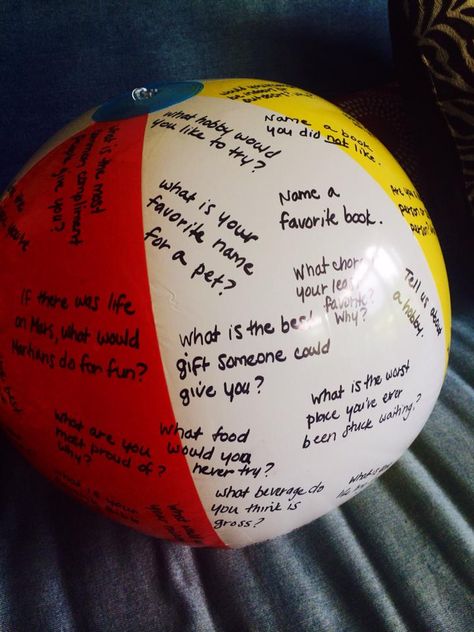 What is the most
common compliment
people give you?
If there was life
on Mars, what would
Martians do for fun?
What are you
most proud of?
Why?
What hobby would
you like to try?
What is your
favorite name
for a pet?
What is the best
gift someone could
give you?
What food
would you
never try?
What beverage do
you think is
gross?
Name a book
you did not like.
Name a
favorite book.
What chore
your least
favorite?
Why?
What is the worst
place you've ever
been stuck waiting?
Tell us about
a hobby.
Are you
person or
person